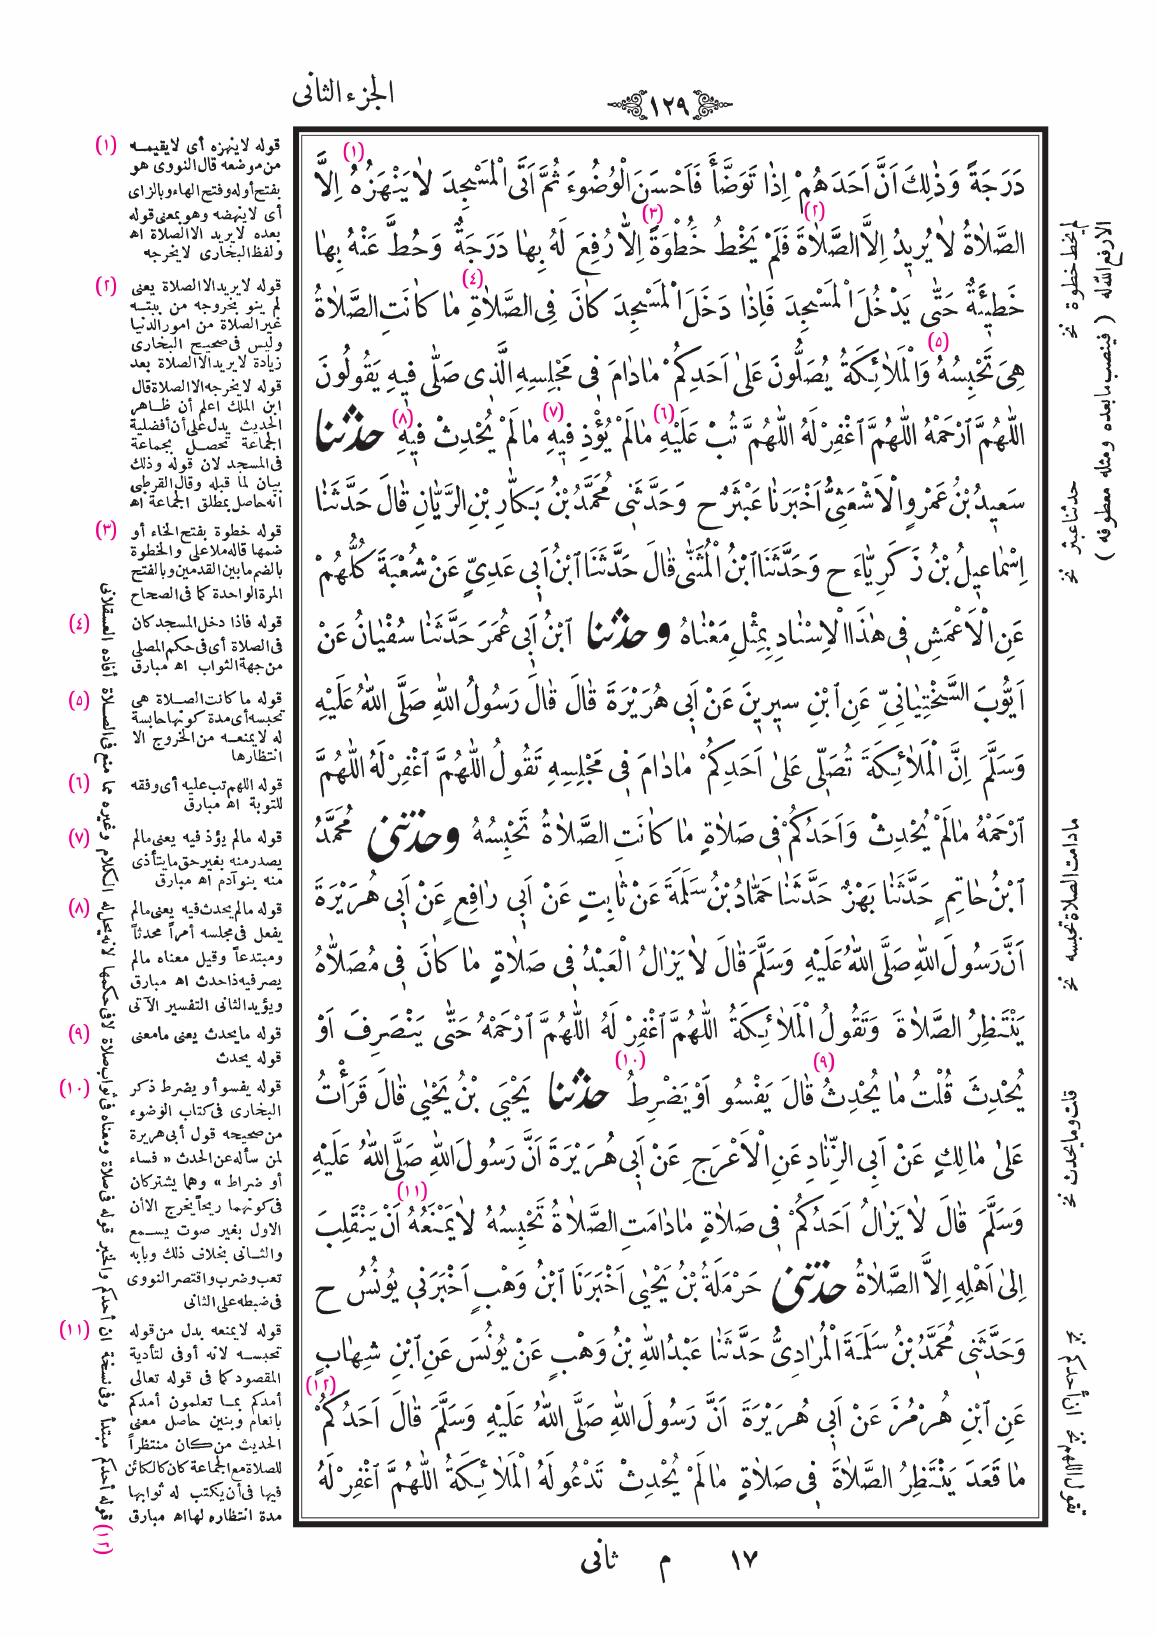 الجزء الثانى
١٢٩
دَرَجَةً وَذٰلِكَ اَنَّ اَحَدَهُمْ اِذَا تَوَضَّأَ فَاَحْسَنَ الْوُضُوءَ ثُمَّ اَتَى الْمَسْجِدَ لَا يَنْهَزُهُ (١) اِلَّا
الصَّلَاةُ لَا يُرِيدُ اِلَّا الصَّلَاةَ (٢) فَلَمْ يَخْطُ خُطْوَةً (٣) اِلَّا رُفِعَ لَهُ بِهَا دَرَجَةٌ وَحُطَّ عَنْهُ بِهَا
خَطِيئَةٌ حَتَّى يَدْخُلَ الْمَسْجِدَ فَاِذَا دَخَلَ الْمَسْجِدَ كَانَ فِى الصَّلَاةِ (٤) مَا كَانَتِ الصَّلَاةُ
هِىَ تَحْبِسُهُ (٥) وَالْمَلَائِكَةُ يُصَلُّونَ عَلَى اَحَدِكُمْ مَادَامَ فِى مَجْلِسِهِ الَّذِى صَلَّى فِيهِ يَقُولُونَ
اللّٰهُمَّ ارْحَمْهُ اللّٰهُمَّ اغْفِرْ لَهُ اللّٰهُمَّ تُبْ عَلَيْهِ (٦) مَالَمْ يُؤْذِ فِيهِ (٧) مَالَمْ يُحْدِثْ فِيهِ (٨) حدثنا
سَعِيدُ بْنُ عَمْرٍو الْاَشْعَثِىُّ اَخْبَرَنَا عَبْثَرٌ ح وَحَدَّثَنِى مُحَمَّدُ بْنُ بَكَّارِ بْنِ الرَّيَّانِ قَالَ حَدَّثَنَا
اِسْمَاعِيلُ بْنُ زَكَرِيَّاءَ ح وَحَدَّثَنَا ابْنُ الْمُثَنَّى قَالَ حَدَّثَنَا ابْنُ اَبِى عَدِىٍّ عَنْ شُعْبَةَ كُلُّهُمْ
عَنِ الْاَعْمَشِ فِى هٰذَا الْاِسْنَادِ بِمِثْلِ مَعْنَاهُ و حدثنا ابْنُ اَبِى عُمَرَ حَدَّثَنَا سُفْيَانُ عَنْ
اَيُّوبَ السَّخْتِيَانِىِّ عَنِ ابْنِ سِيرِينَ عَنْ اَبِى هُرَيْرَةَ قَالَ قَالَ رَسُولُ اللّٰهِ صَلَّى اللّٰهُ عَلَيْهِ
وَسَلَّمَ اِنَّ الْمَلَائِكَةَ تُصَلِّى عَلَى اَحَدِكُمْ مَادَامَ فِى مَجْلِسِهِ تَقُولُ اللّٰهُمَّ اغْفِرْ لَهُ اللّٰهُمَّ
ارْحَمْهُ مَالَمْ يُحْدِثْ وَاَحَدُكُمْ فِى صَلَاةٍ مَا كَانَتِ الصَّلَاةُ تَحْبِسُهُ وحدثنى مُحَمَّدُ
ابْنُ حَاتِمٍ حَدَّثَنَا بَهْزٌ حَدَّثَنَا حَمَّادُ بْنُ سَلَمَةَ عَنْ ثَابِتٍ عَنْ اَبِى رَافِعٍ عَنْ اَبِى هُرَيْرَةَ
اَنَّ رَسُولَ اللّٰهِ صَلَّى اللّٰهُ عَلَيْهِ وَسَلَّمَ قَالَ لَا يَزَالُ الْعَبْدُ فِى صَلَاةٍ مَا كَانَ فِى مُصَلَّاهُ
يَنْتَظِرُ الصَّلَاةَ وَتَقُولُ الْمَلَائِكَةُ اللّٰهُمَّ اغْفِرْ لَهُ اللّٰهُمَّ ارْحَمْهُ حَتَّى يَنْصَرِفَ اَوْ
يُحْدِثَ قُلْتُ مَا يُحْدِثُ (٩) قَالَ يَفْسُو اَوْ يَضْرِطُ (١٠) حدثنا يَحْيَى بْنُ يَحْيَى قَالَ قَرَأْتُ
عَلَى مَالِكٍ عَنْ اَبِى الزِّنَادِ عَنِ الْاَعْرَجِ عَنْ اَبِى هُرَيْرَةَ اَنَّ رَسُولَ اللّٰهِ صَلَّى اللّٰهُ عَلَيْهِ
وَسَلَّمَ قَالَ لَا يَزَالُ اَحَدُكُمْ فِى صَلَاةٍ مَادَامَتِ الصَّلَاةُ تَحْبِسُهُ لَا يَمْنَعُهُ (١١) اَنْ يَنْقَلِبَ
اِلَى اَهْلِهِ اِلَّا الصَّلَاةُ حدثنى حَرْمَلَةُ بْنُ يَحْيَى اَخْبَرَنَا ابْنُ وَهْبٍ اَخْبَرَنِى يُونُسُ ح
وَحَدَّثَنِى مُحَمَّدُ بْنُ سَلَمَةَ الْمُرَادِىُّ حَدَّثَنَا عَبْدُ اللّٰهِ بْنُ وَهْبٍ عَنْ يُونُسَ عَنِ ابْنِ شِهَابٍ
عَنِ ابْنِ هُرْمُزَ عَنْ اَبِى هُرَيْرَةَ اَنَّ رَسُولَ اللّٰهِ صَلَّى اللّٰهُ عَلَيْهِ وَسَلَّمَ قَالَ اَحَدُكُمْ (١٢)
مَا قَعَدَ يَنْتَظِرُ الصَّلَاةَ فِى صَلَاةٍ مَالَمْ يُحْدِثْ تَدْعُو لَهُ الْمَلَائِكَةُ اللّٰهُمَّ اغْفِرْ لَهُ
لم يخط خطوة نخ
الا رفع الله له ( فينصب ما بعده ومثله معطوفه )
حدثنا عبثر نخ
مادامت الصلاة تحبسه نخ
قلت وما يحدث نخ
ان أحدكم نخ
تقول اللهم نخ
(١) قوله لا ينهزه أى لا يقيمه
من موضعه قال النووى هو
بفتح أوله وفتح الهاء وبالزاى
أى لا ينهضه وهو بمعنى قوله
بعده لا يريد الا الصلاة اه
ولفظ البخارى لا يخرجه
(٢) قوله لا يريد الا الصلاة يعنى
لم ينو بخروجه من بيته
غير الصلاة من امور الدنيا
وليس فى صحيح البخارى
زيادة لا يريد الا الصلاة بعد
قوله لا يخرجه الا الصلاة قال
ابن الملك اعلم أن ظاهر
الحديث يدل على أن أفضلية
الجماعة تحصل بجماعة
فى المسجد لان قوله وذلك
بيان لما قبله وقال القرطبى
انه حاصل بمطلق الجماعة اه
(٣) قوله خطوة بفتح الخاء أو
ضمها قاله ملا على والخطوة
بالضم ما بين القدمين وبالفتح
المرة الواحدة كما فى الصحاح
(٤) قوله فاذا دخل المسجد كان
فى الصلاة أى فى حكم المصلى
من جهة الثواب اه مبارق
(٥) قوله ما كانت الصلاة هى
تحبسه أى مدة كونها حابسة
له لا يمنعه من الخروج الا
انتظارها
(٦) قوله اللهم تب عليه أى وفقه
للتوبة اه مبارق
(٧) قوله مالم يؤذ فيه يعنى مالم
يصدر منه بغير حق ما يتأذى
منه بنو آدم اه مبارق
(٨) قوله مالم يحدث فيه يعنى مالم
يفعل فى مجلسه أمرا محدثا
ومبتدعا وقيل معناه مالم
يصر فيه ذا حدث اه مبارق
ويؤيد الثانى التفسير الآتى
(٩) قوله ما يحدث يعنى ما معنى
قوله يحدث
(١٠) قوله يفسو أو يضرط ذكر
البخارى فى كتاب الوضوء
من صحيحه قول أبى هريرة
لمن سأله عن الحدث « فساء
أو ضراط » وهما يشتركان
فى كونهما ريحا يخرج الا أن
الاول بغير صوت يسمع
والثانى بخلاف ذلك وبابه
تعب وضرب واقتصر النووى
فى ضبطه على الثانى
(١١) قوله لا يمنعه بدل من قوله
تحبسه لانه أوفى لتأدية
المقصود كما فى قوله تعالى
أمدكم بما تعلمون أمدكم
بانعام وبنين حاصل معنى
الحديث من كان منتظرا
للصلاة مع الجماعة كان كالكائن
فيها فى أن يكتب له ثوابها
مدة انتظاره لها اه مبارق
(١٢) قوله أحدكم مبتدأ وفى نسخة ان أحدكم والخبر قوله فى صلاة ومعناه فى ثواب صلاة لا فى حكمها لانه يحل له الكلام وغيره مما منع فى الصلاة أفاده العسقلانى
١٧ م ثانى